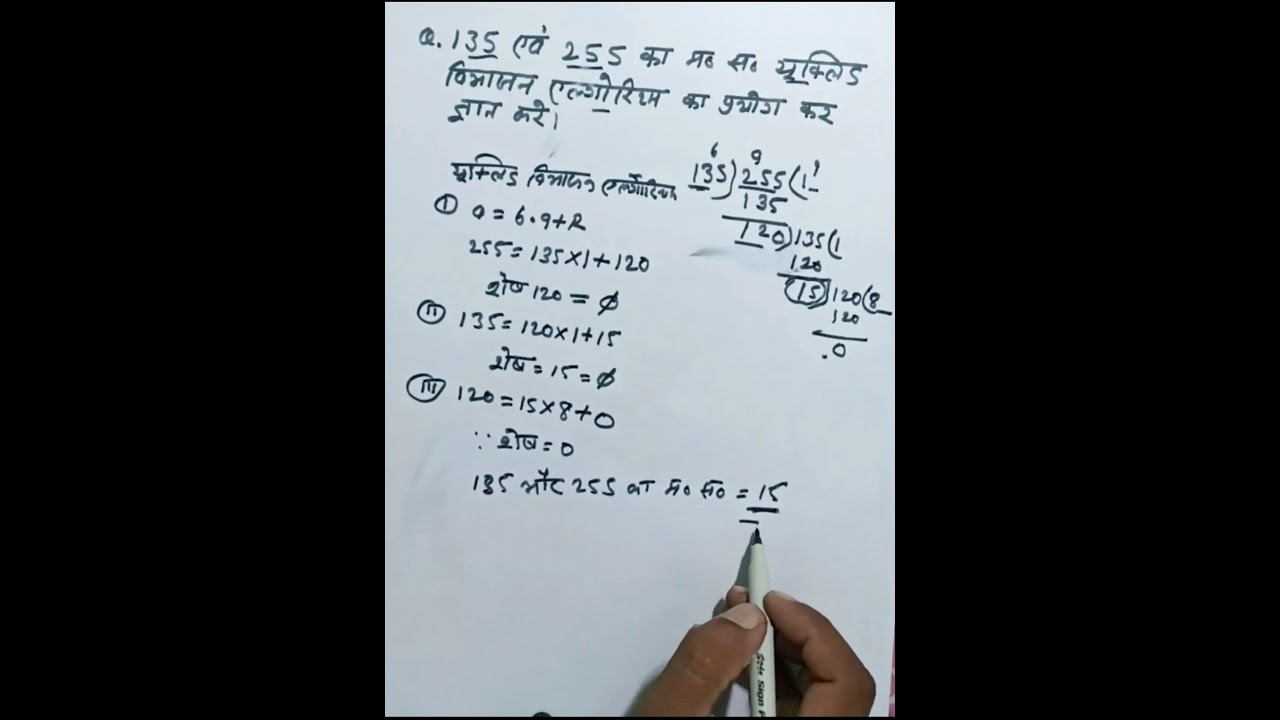 Q. 135 एवं 255 का म० स० यूक्लिड
विभाजन एल्गोरिथ्म का प्रयोग कर
ज्ञात करे।
यूक्लिड विभाजन एल्गोरिथ्म
6 9 9
135)255(1
135
120)135(1
120
15)120(8
120
.0
I a=b.q+r
255=135×1+120
शेष 120 = ∅
II 135=120×1+15
शेष=15=∅
III 120=15×8+0
∵ शेष=0
135 और 255 का म० स० = 15
Sign